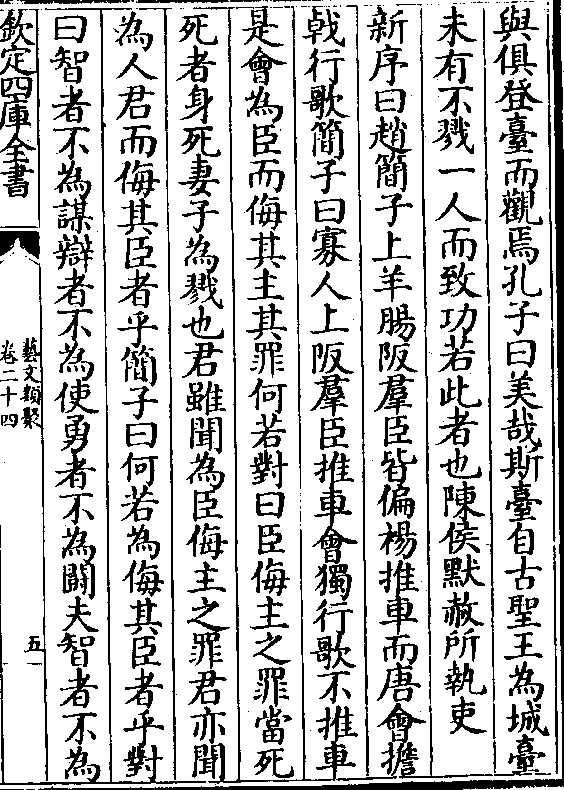 與俱登臺而觀焉孔子曰美哉斯臺自古聖王為城臺
未有不戮一人而致功若此者也陳侯默赦所執吏
新序曰趙簡子上羊腸阪羣臣皆偏楊推車而唐會擔
戟行歌簡子曰寡人上阪羣臣推車會獨行歌不推車
是會為臣而侮其主其罪何若對曰臣侮主之罪當死
死者身死妻子為戮也君雖聞為臣侮主之罪君亦聞
為人君而侮其臣者乎簡子曰何若為侮其臣者乎對
曰智者不為謀辯者不為使勇者不為鬬夫智者不為
欽定四庫全書
藝文類聚
卷二十四
五